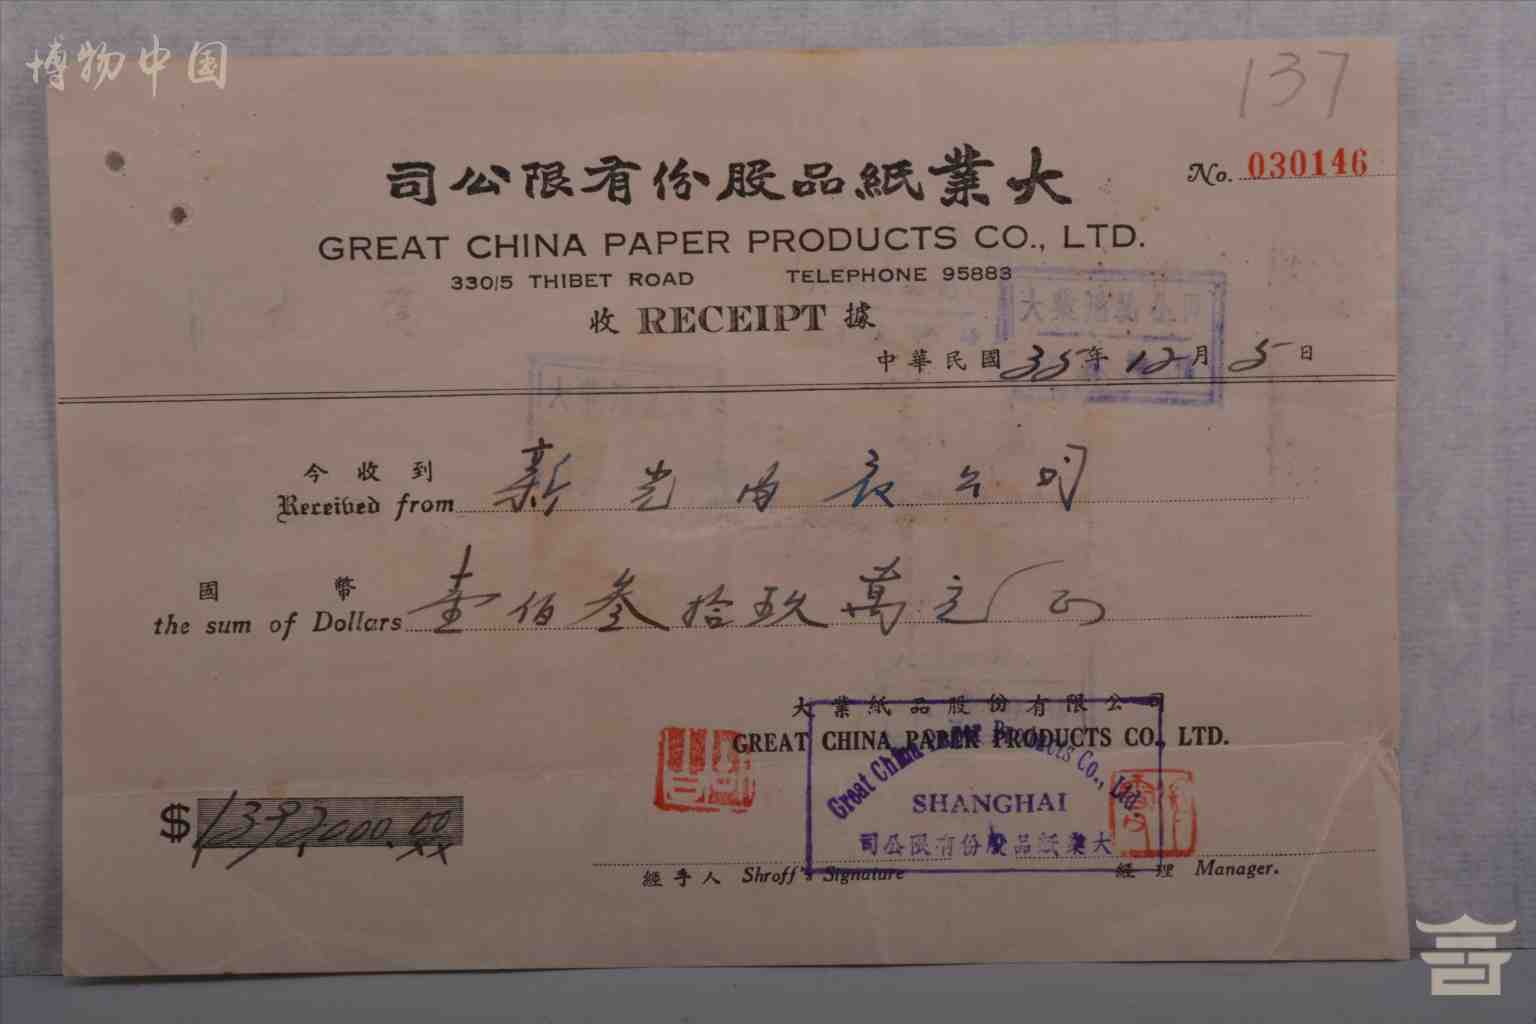 博物中国
137
大業紙品股份有限公司
No. 030146
GREAT CHINA PAPER PRODUCTS CO., LTD.
330/5 THIBET ROAD TELEPHONE 95883
收 RECEIPT 據
中華民國 35 年 12 月 5 日
今收到
Received from 新光内衣公司
國幣
the sum of Dollars 壹佰叁拾玖萬元正
大業紙品股份有限公司
GREAT CHINA PAPER PRODUCTS CO., LTD.
Great China Paper Products Co., Ltd.
SHANGHAI
大業紙品股份有限公司
$ 1392,000.00
經手人 Shroff's Signature
經理 Manager.